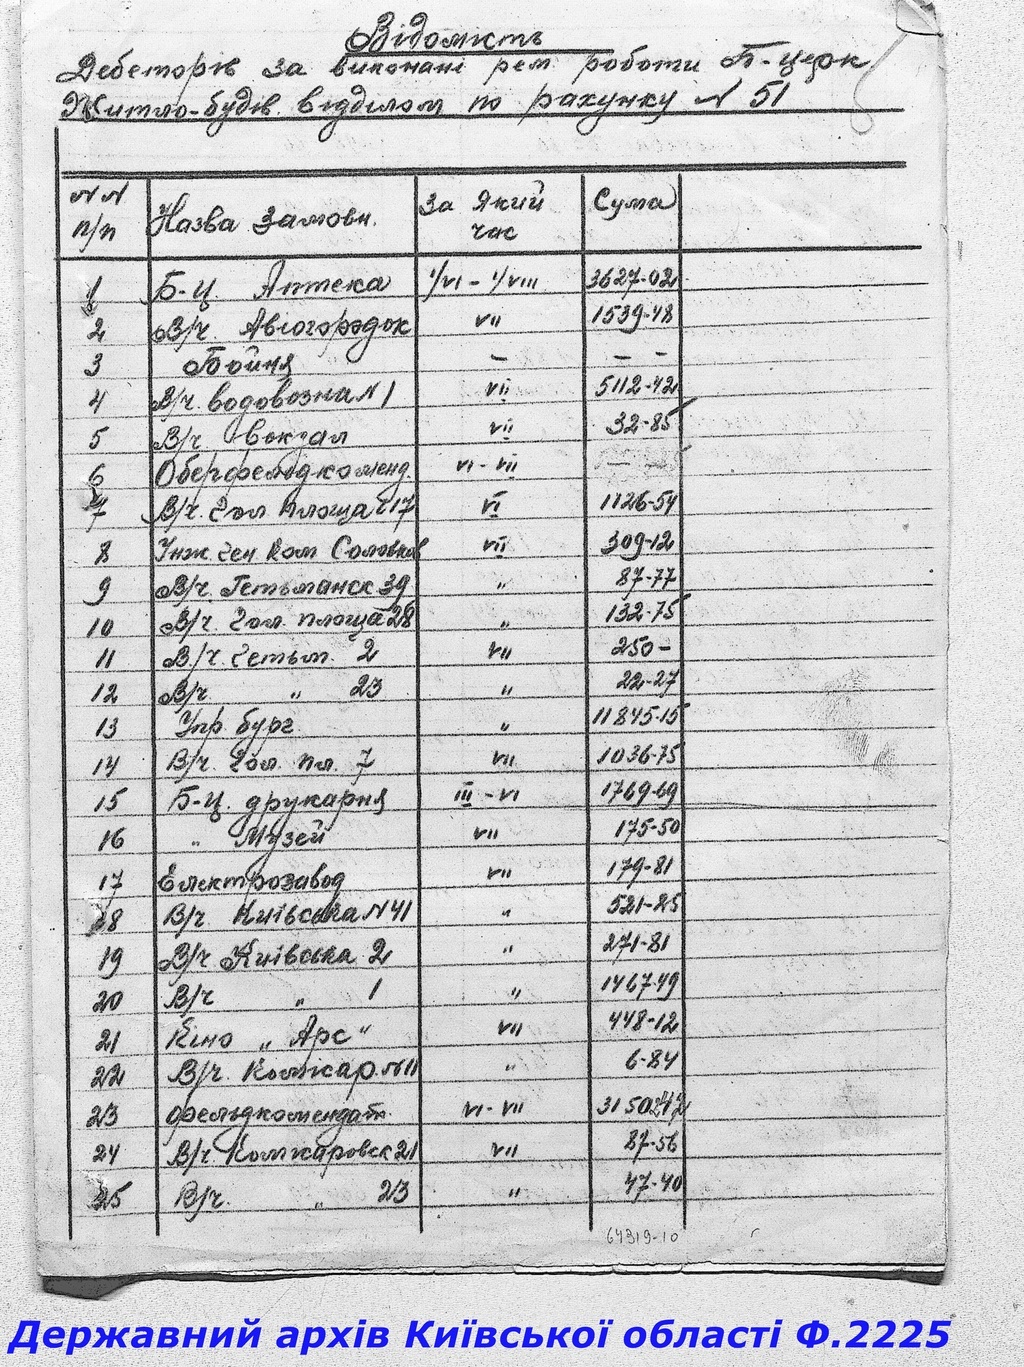 Відомість
Дебеторів за виконані рем. роботи Б-Церк
Житло-будів. відділом по рахунку № 51
№ № п/п Назва Замовн. За Який час Сума
1 Б-Ц. Аптека 1/VI - 1/VIII 3627-02
2 В/ч. Авіогородок VII 1539-48
3 Бойня - - -
4 В/ч. водовозна № 1 VII 5112-42
5 В/ч вокзал VII 32-85
6 Оберфельдкоменд. VI - VII
7 В/ч. Гол площа 17 VI 1126-54
8 Інж. ген ком Соловков VII 309-12
9 В/ч. Гетьманск 39 " 87-77
10 В/ч. Гол. площа 28 " 132-75
11 В/ч. Гетьм. 2 VII 250-
12 В/ч. " 23 " 22-27
13 Упр. бург. " 11845-15
14 В/ч. Гол. пл. 7 VII 1036-75
15 Б-Ц. друкарня III - VI 1769-69
16 " Музей VII 175-50
17 Електрозавод VII 179-81
18 В/ч Київська № 41 " 521-85
19 В/ч. Київська 2 " 271-81
20 В/ч " 1 " 1467-49
21 Кіно „ Арс " VII 448-12
22 В/ч. Комкар. № 11 " 6-84
23 Фельдкомендат. VI - VII
24 В/ч Комкаровск 21 VII 87-56
25 В/ч. " 23 " 47-40
64319-10
Державний архів Київської області Ф.2225